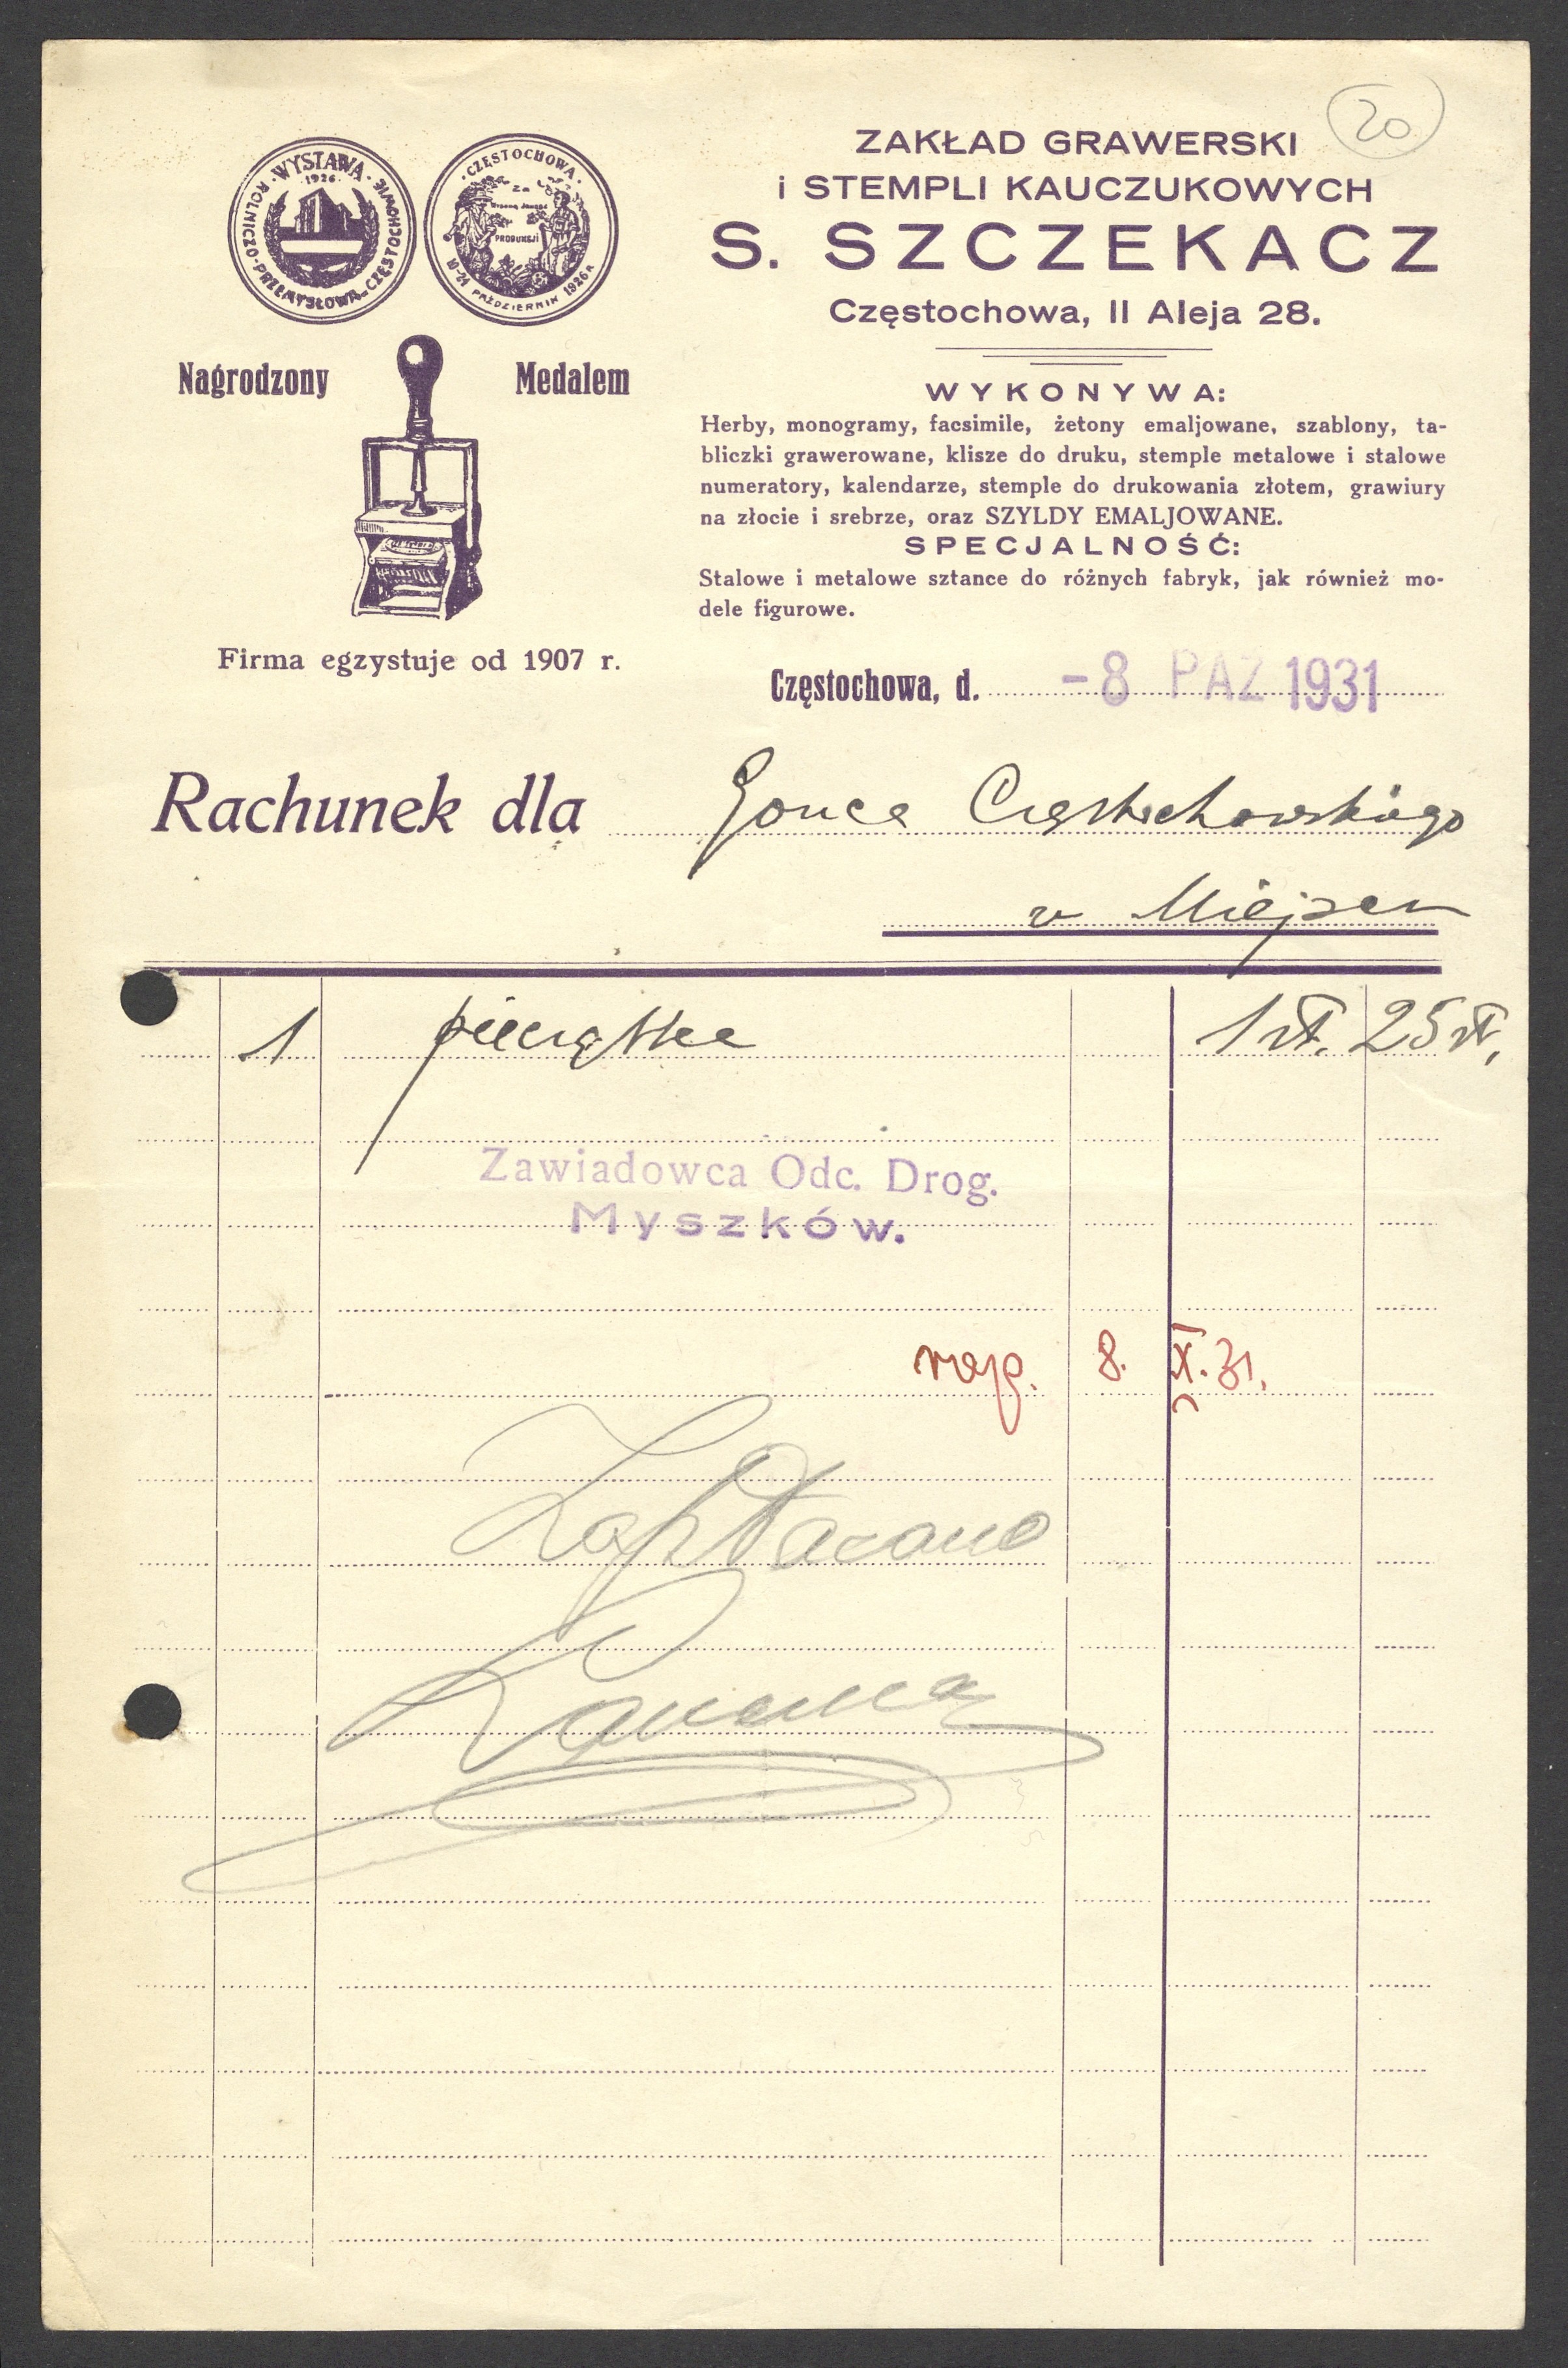 20
ZAKŁAD GRAWERSKI
i STEMPLI KAUCZUKOWYCH
S. SZCZEKACZ
Częstochowa, II Aleja 28.
WYSTAWA
1926
ROLNICZO-PRZEMYSŁOWA-CZĘSTOCHOWIE
CZĘSTOCHOWA
Za
PRODUKCJI
PAŹDZIERNIK 1926 R
Nagrodzony Medalem
Firma egzystuje od 1907 r.
WYKONYWA:
Herby, monogramy, facsimile, żetony emaljowane, szablony, ta-
bliczki grawerowane, klisze do druku, stemple metalowe i stalowe
numeratory, kalendarze, stemple do drukowania złotem, grawiury
na złocie i srebrze, oraz SZYLDY EMALJOWANE.
SPECJALNOŚĆ:
Stalowe i metalowe sztance do różnych fabryk, jak również mo-
dele figurowe.
Częstochowa, d. -8 PAZ 1931
Rachunek dla Gońca Częstochowskiego
w Miejscu
1 pieczątka 1 zł. 25 zł.
Zawiadowca Odc. Drog.
Myszków.
8. X. 31.
Zapłacono